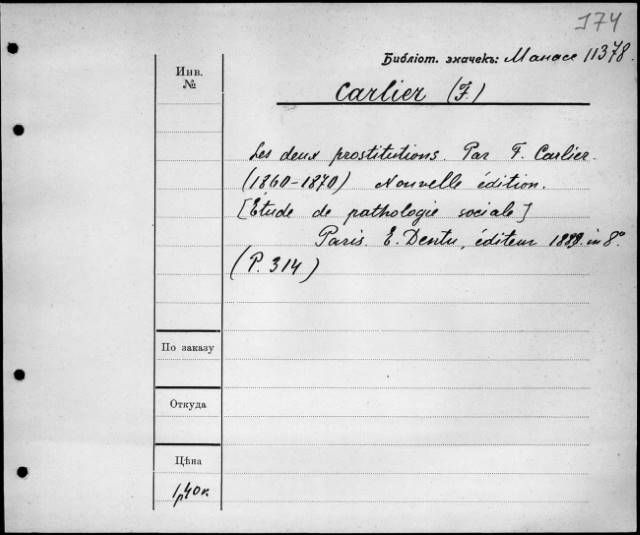 174
Библіот. значекъ: Манасе 11378.
Инв.
№
Carlier (F.)
Les deux prostitutions. Par F. Carlier.
(1860-1870) Nouvelle édition.
[Etude de pathologie sociale]
Paris. E. Dentu, éditeur 1889. in 8°
(P. 314)
По заказу
Откуда
Цѣна
1р40к.